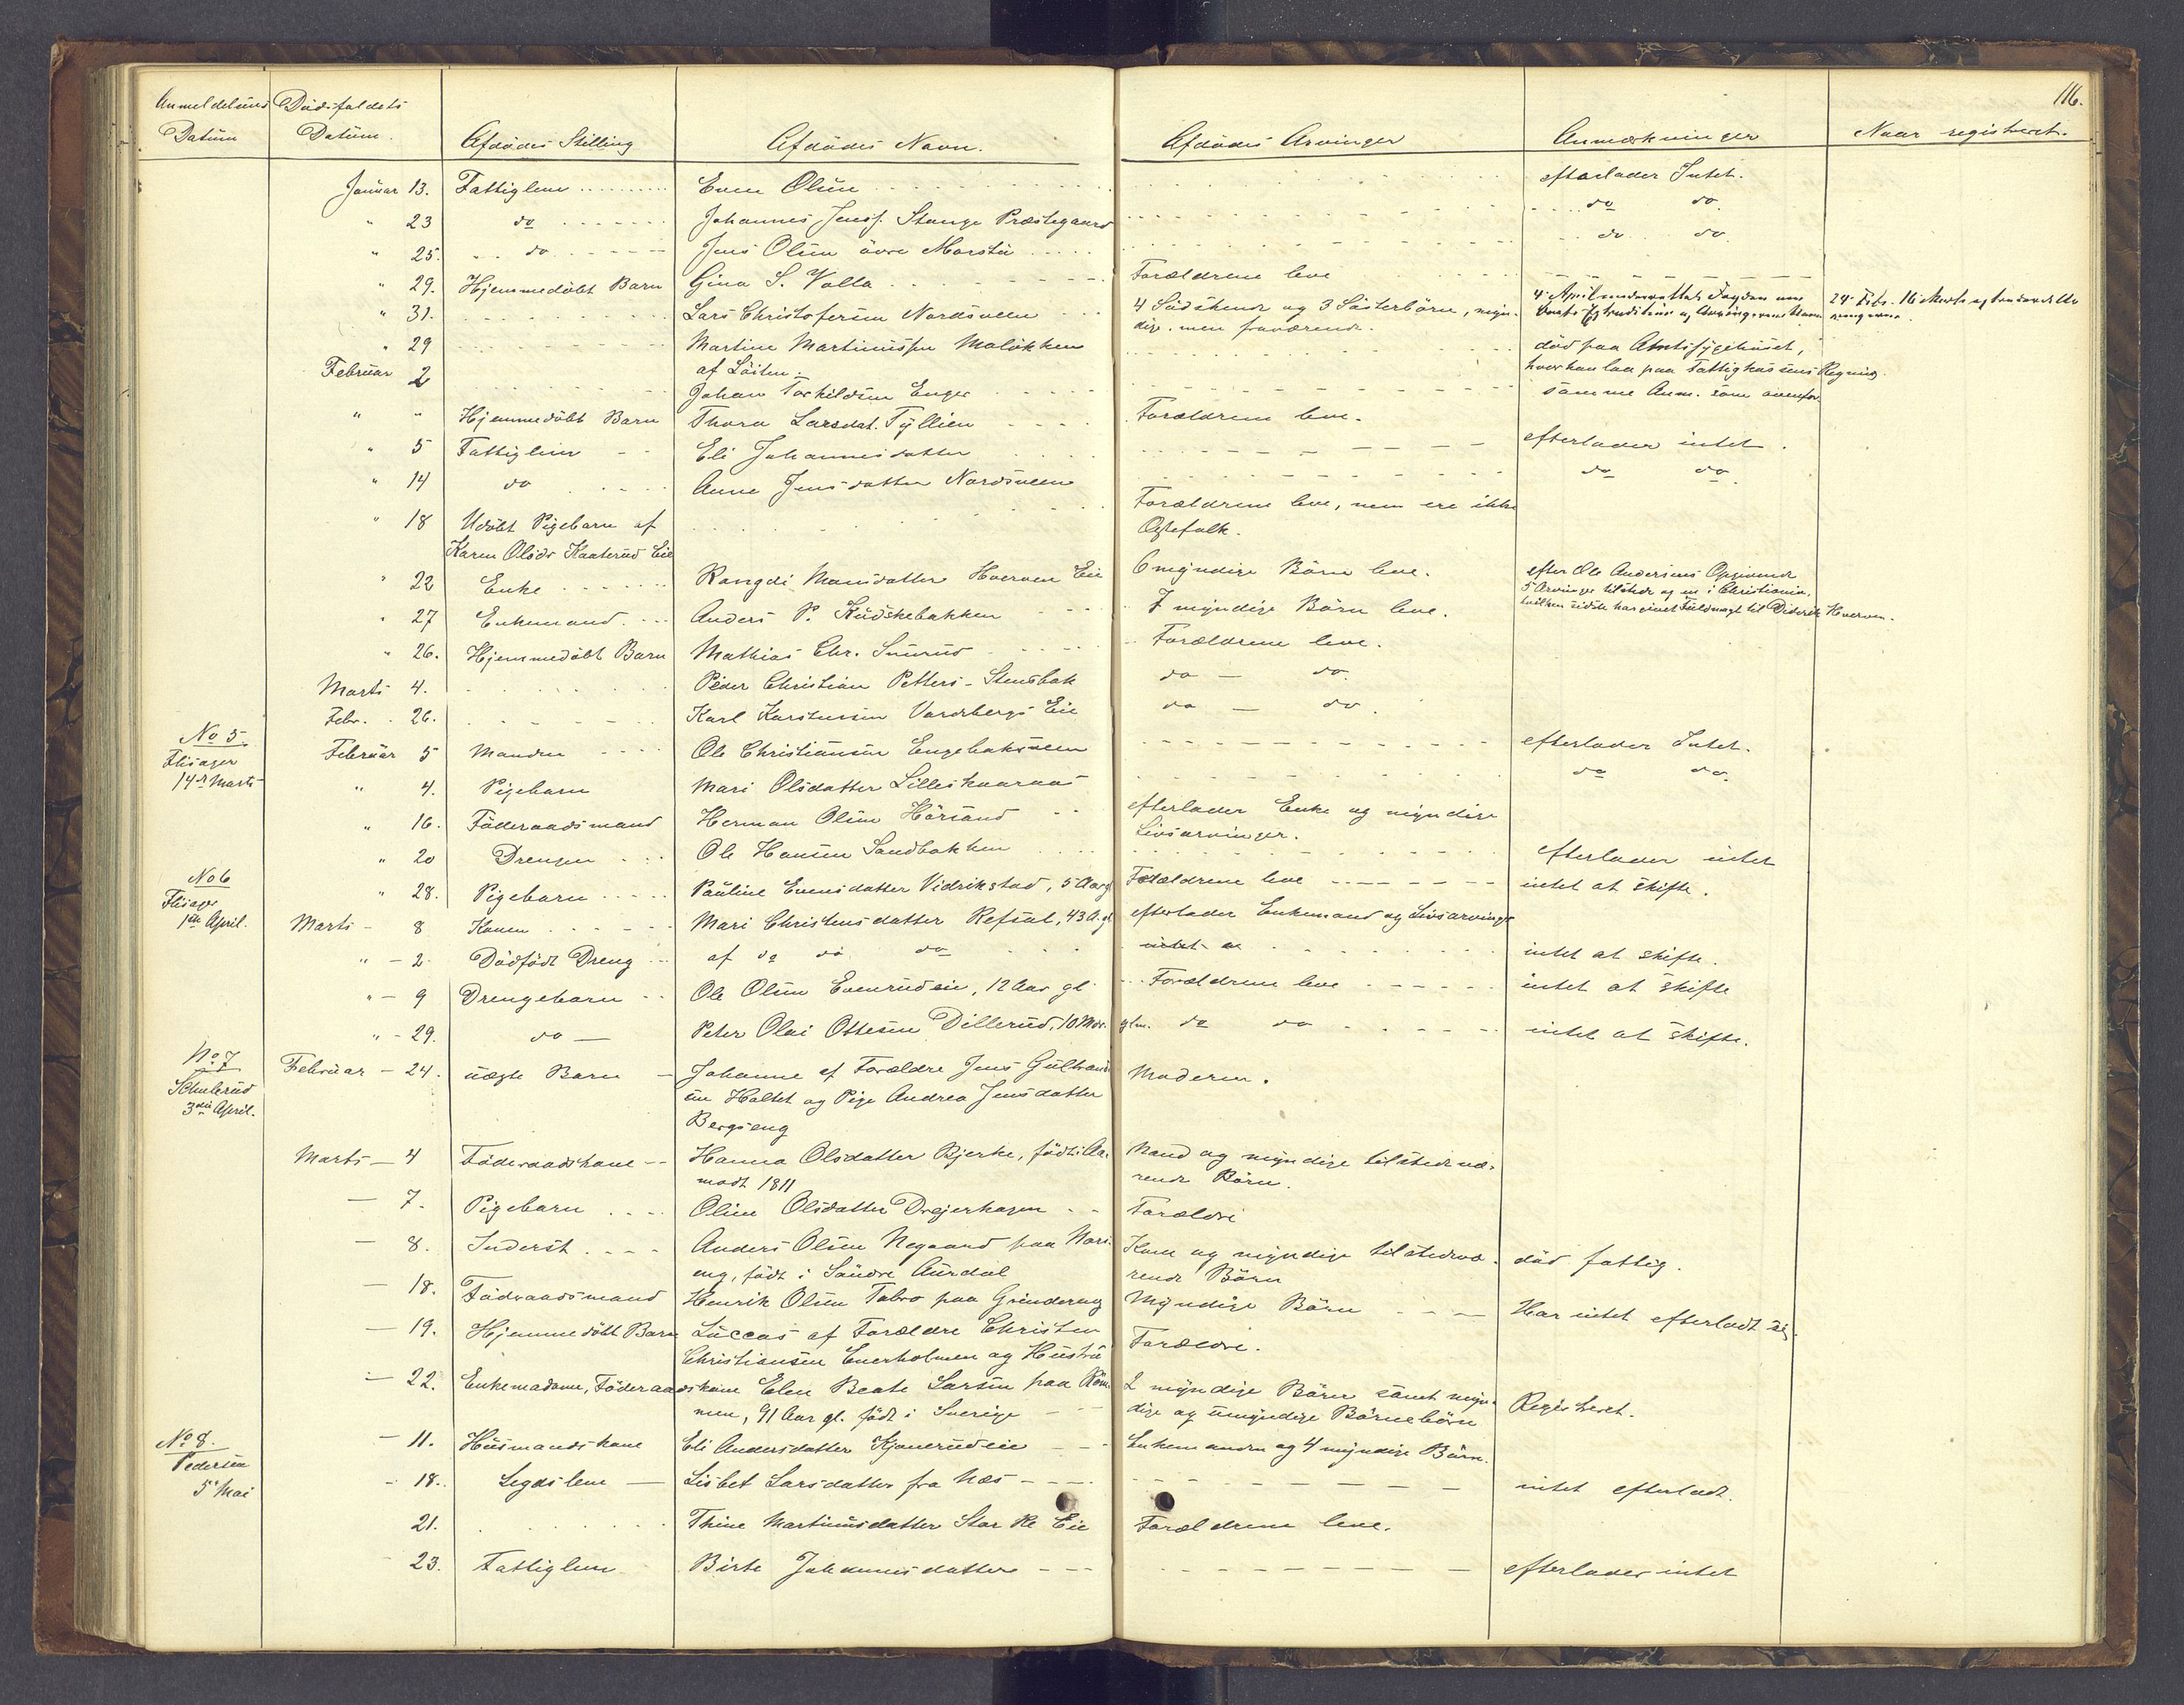 116.
Anmeldelsens Dødsfaldets
Datum Datum. Afdødes Stilling Afdødes Navn. Afdødes Arvinger Anmærkninger Naar registreret.
Januar 13. Fattiglem Even Olsen efterlader Intet.
" 23 do Johannes Jensf. Stange Præstegaard do do.
" 25. do Jens Olsen øvre Marstu do do.
" 29. Hjemmedøbt Barn Gina S. Volla Forældrene leve
" 31. Lars Christofersen Nordsveen 4 Södskende og 3 Sösterbörn, myn- 4. April underrettet Fogden om 24. Febr. 16 Marts og
dige, men fraværende.
" 29 Martine Martinussen Moløkken død paa Amtssygehuset,
af Löiten. hvor han laa paa Fattigkassens Regning.
Februar 2 Johan Torkildsen Enger samme Anm. som ovenfor
" " Hjemmedøbt Barn Thora Larsdat. Tyllien Forældrene leve.
" 5 Fattiglem Eli Johannesdatter efterlader intet.
" 14 do Anne Jensdatter Nordsveen do do.
" 18 Udøbt Pigebarn af Forældrene leve, men ere ikke
Karen Olsdr Kaaterud Eie Ægtefolk.
" 22 Enke Rangdi Mansdatter Hverven Eie 6 myndige Börn leve. efter Ole Andersens Opgivende
5 Arvinger tilstede og en i Christiania,
" 27 Enkemand. Anders P. Kudskebakken 7 myndige Börn leve. hvilken sidste har givet Fuldmagt til Diderik Hverven.
" 26. Hjemmedøbt Barn Mathias Chr. Smerud Forældrene leve.
Marts 4. Peder Christian Petters. Stensbak do — do.
Febr. 26. Karl Karstensen Vardebergs Eie do — do.
No 5. Februar 5 Manden Ole Christiansen Engebaksveen efterlader Intet.
Flisager
14de Marts " 4. Pigebarn Mari Olsdatter Lilleskaaraas do do.
" 16. Föderaadsmand Herman Olsen Hörsand efterlader Enke og myndige
Livsarvinger.
" 20 Drengen Ole Hansen Sandbakken efterlader intet
No 6 " 28. Pigebarn Pauline Evensdatter Vidrikstad, 5 Aar gl Forældrene leve intet at skifte.
Flisager
1ste April. Marts - 8 Konen Mari Christensdatter Refsal, 43 A. gl efterlader Enkemand og Livsarvinge
" - 2 Dödfödt Dreng af do do do intet at skifte.
" - 9 Drengebarn Ole Olsen Evenrudeie, 12 Aar gl. Forældrene leve intet at skifte
" - 29. do — Peter Olai Ottesen Dillerud, 10 Mdr. glm. do do intet at skifte.
No 7 Februar - 24. uægte Barn - Johanne af Forældre Jens Gulbrand- Moderen.
Schulerud sen Holtet og Pige Andrea Jensdatter
3die April. Bergseng
Marts — 4 Föderaadskone -- Hanna Olsdatter Bjerke, födt i Aa- Mand og myndige tilstedevæ-
modt 1811 rende Börn.
— 7. Pigebarn Oline Olsdatter Drejerhagen Forældre
— 8. Inderst Anders Olsen Negaard paa Mari- Kone og myndige tilstedevæ- död fattig.
eng, födt i Söndre Aurdal rende Börn
— 18. Föderaadsmand Henrik Olsen Tabro paa Grindereng Myndige Börn Har intet efterladt sig.
— 19. Hjemmedöbt Barn Luccas af Forældre Christen Forældre.
Christiansen Enerholmen og Hustru
— 22. Enkemadame, Föderaadskone Elen Beate Larsen paa Röm- 2 myndige Börn samt myn- Registreret.
men, 91 Aar gl. födt i Sverige dige og umyndige Börnebörn
No 8. — 11. Husmandskone Eli Andersdatter Kjonerudeie Enkemanden og 4 myndige Börn.
Pedersen
5te Mai - 18. Legdslem — Lisbet Larsdatter fra Næs intet efterladt.
21. Thine Martinusdatter Star Re Eie Forældrene leve.
23. Fattiglem Birte Johannesdatter efterlader intet